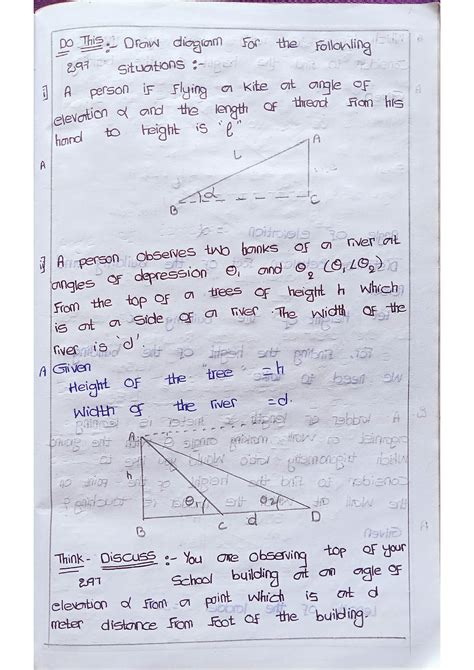 Do This :- Draw diagram for the following
297 situations :-
i) A person if flying a kite at angle of
elevation α and the length of thread from his
hand to height is "l"
A
A
L
α
B
C
ii) A person observes two banks of a river at
angles of depression θ1 and θ2 (θ1 ∠ θ2)
from the top of a trees of height h which
is at a side of a river. The width of the
river is 'd'.
A Given
Height of the "tree" = h
Width of the river = d.
A
h
θ1
θ2
B
C
d
D
Think - Discuss :- You are observing top of your
297 School building at an agle of
elevation α from a point which is at d
meter distance from foot of the building.